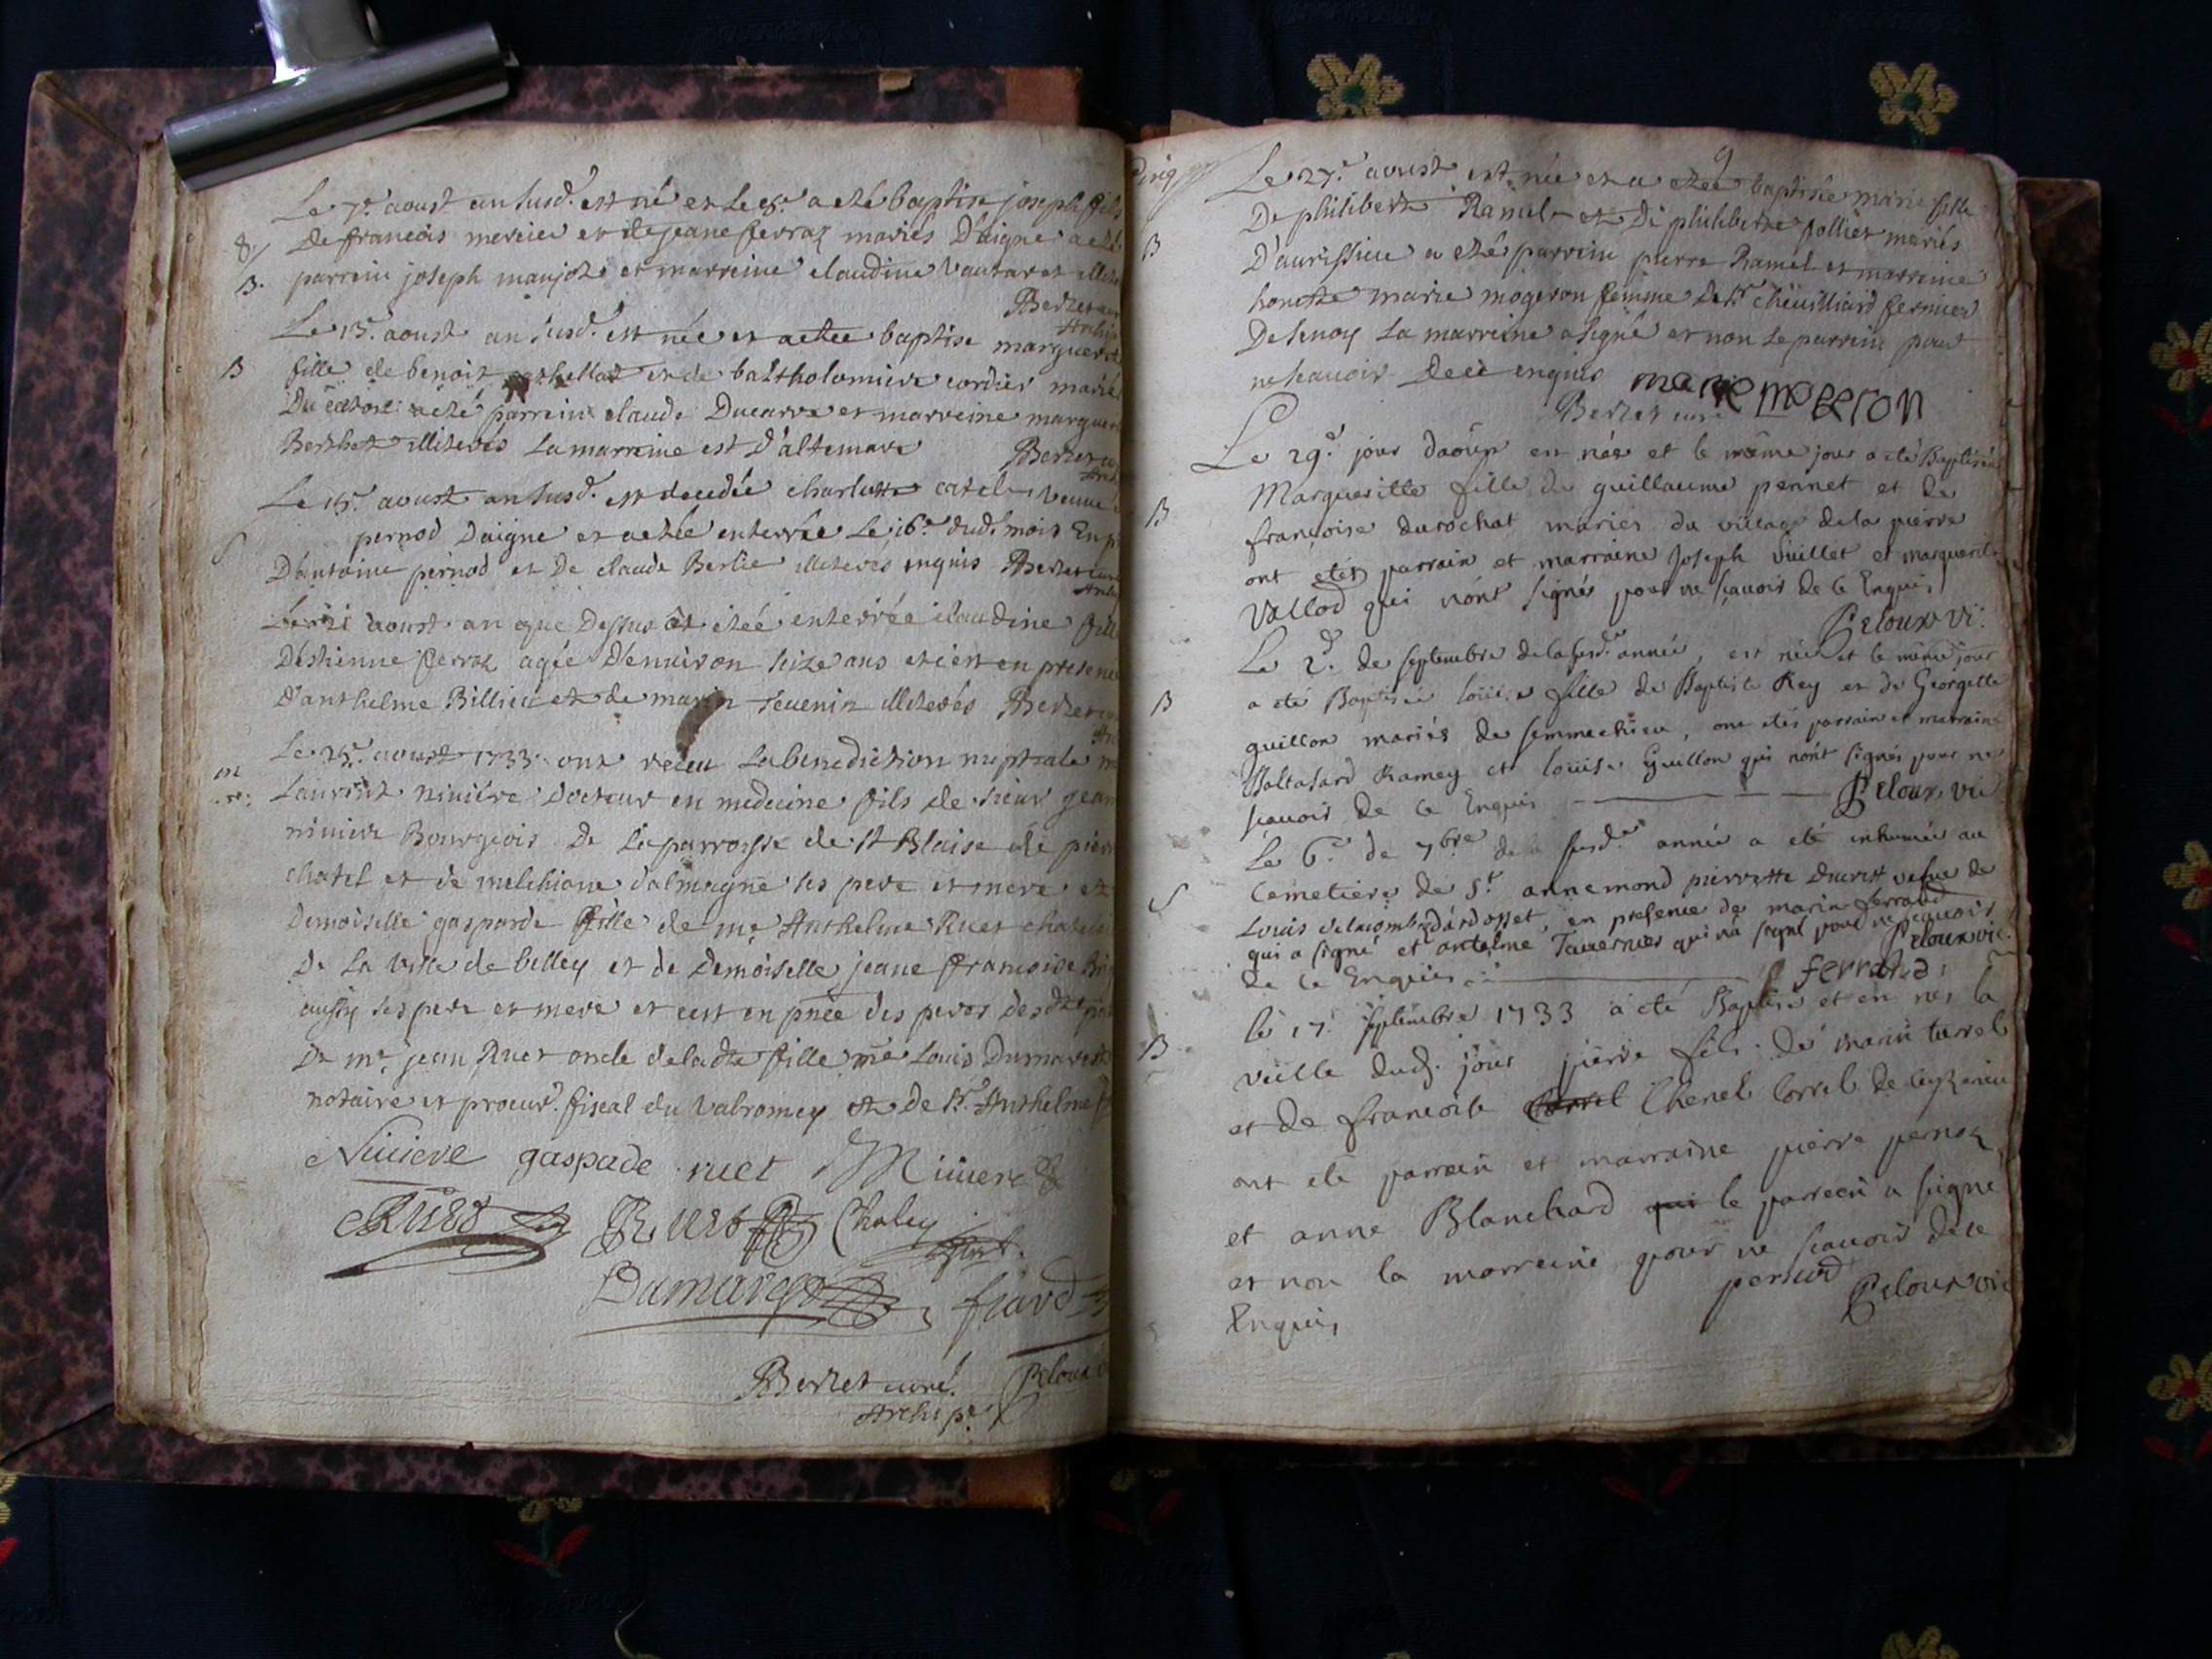 Le 7e aoust an susd. est né et le 8e a eté baptisé joseph fils
8
de francois mercier et de jeane ferraz mariés D'aigne a eté
B. parrein joseph maujot et marreine claudine Vautaret
Berzet
Le 13e aoust an susd. est née et a etee baptise marguerite
B fille de benoit et de baltholomiere cordier mariés
a eté parrein claude Ducarre et marreine marguer
Berthet illiterés La marreine est d'altemare Berzet
Le 15e aoust an susd. est decedée charlotte catel veuve
pernod Daigne et a etée enterrée Le 16e dud. mois En p
S
D'antoine pernod et De claude Berlie illiterés enquis Berzet curé
aoust an que Dessus et etéé enterrée claudine fille
D'estienne ferraz agée d'environ seize ans et c'est en presence
d'anthelme Billieu et de marin Tevenin illiterés Berzet
Le 25e aoust 1733 ont receu La benediction nuptiale
m
Laurent niviére Docteur en medecine fils de sieur jean
niviere Bourgeois De La parroisse de St Blaise de pierr
chatel et de melchiane d'almagne ses pere et mere et
Demoiselle gasparde fille de me Anthelme Ruet
De La Ville de belley et de Demoiselle jeane francoise
aussy ses pere et mere et c'est en pnce des peres desdtes
De me jean Ruet oncle de ladte fille me Louis Dumarest
notaire et procur. fiscal du Valromey et de Sr. Anthelme
Niviere gaspade ruet Niviere
Ruet Ruet Chaley
Dumarest fiard
Berzet curé. Peloux
Archip.
9
Le 27e aoust est née et a etéé baptisée marie fille
De philibert Ramel et De philiberte follier mariés
B D'aurissieu a eté parrein pierre Ramel et marreine
honete marie mogeron femme de Sr. fermier
De La marreine a signé et non le parrein pour
ne scavoir De ce enquis marie mogeron
Berzet curé
Le 29e jour d'aoûst est née et le même jour a eté Baptisée
B Marguerite fille de guillaume pennet et de
françoise durochat mariés du village de la pierre
ont etés parrain et marraine Joseph Vuillet et marguerite
Vallod qui n'ont signés pour ne sçavoir de ce Enquis
Peloux vi.
Le 2e. de septembre de la susd. année, est née et le même jour
B a eté Baptisée loüise fille de Baptiste Rey et de Georgette
guillon mariés de semmechieu, ont etés parrain et marraine
Baltasard Ramey et louise Guillon qui n'ont signés pour ne
scavoir de ce Enquis Peloux vic
Le 6e. de 7bre de la susd. année a eté inhumée au
S Cemetiere de St. annemond pierrette Ducret vefve de
Louis d'ardosset, en presence de marin ferrand
qui a signé et antelme Tavernier qui n'a signé pour ne scavoir
de ce Enquis Peloux vic.
ferrand
B le 17. septembre 1733 a eté Baptisé et est né la
veille dud. jour pierre fils de marin turrel
et de francoise Chenel Correl de
ont eté parrain et marraine pierre pernod
et anne Blanchard qui le parrein a signé
et non la marreine pour ne scavoir de ce
Enquis pernod Peloux vic